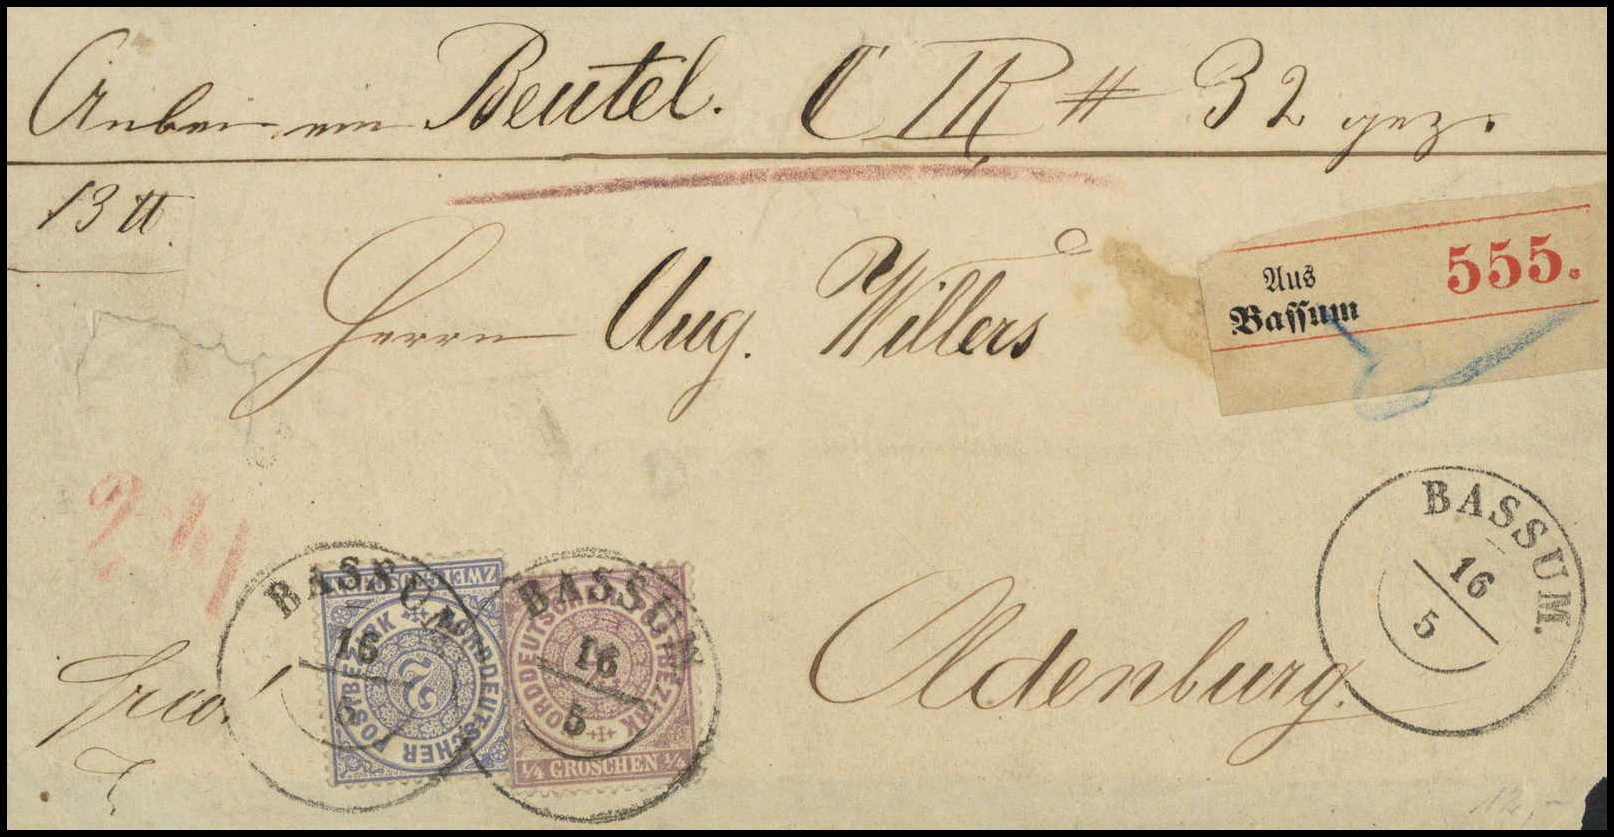 Anbei ein Beutel. C TR # 32 gez.
13 tt.
Herrn Aug. Willers
Aus
Bassum
555.
BASSUM.
16
5
Oldenburg.
frco.
BASSUM
16
5
ZWEI GROSCHEN
NORDDEUTSCHER POSTBEZIRK
2
BASSUM
16
5
NORDDEUTSCHER POSTBEZIRK
1/4 GROSCHEN 1/4